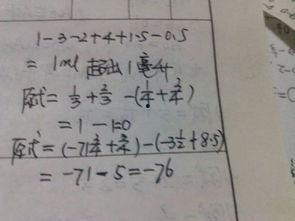 1-3-2+4+1.5-0.5
= 1ml 超出1毫升
原式= 1/3 + 2/3 - (1/4 + 2/4)
= 1-1=0
原式=(-71 2/4 + 2/4)-(-3 1/2 + 8.5)
= -71-5=-76